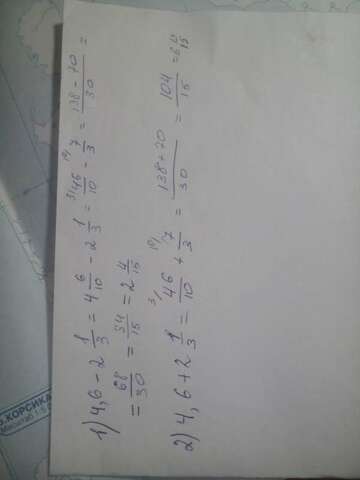 1) 4,6 - 2 1/3 = 4 6/10 - 2 1/3 = 3) 46/10 - 10) 7/3 = 138 - 70/30 =
= 68/30 = 34/15 = 2 4/15
2) 4,6 + 2 1/3 = 3) 46/10 + 10) 7/3 = 138 + 70/30 = 104/15 =
о. КОРСИКА